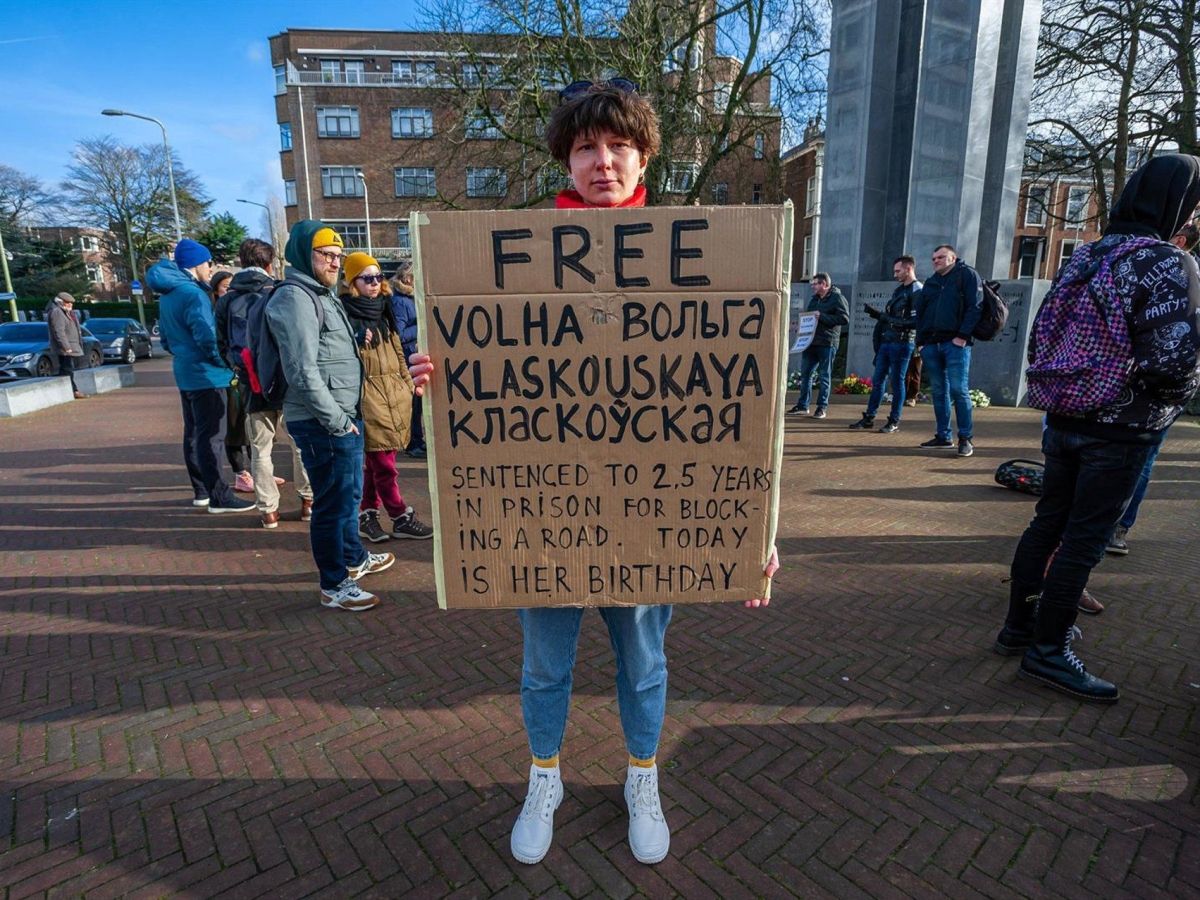 FREE
VOLHA ВОЛЬГА
KLASKOUSKAYA
КЛАСКОЎСКАЯ
SENTENCED TO 2,5 YEARS
IN PRISON FOR BLOCK-
ING A ROAD. TODAY
IS HER BIRTHDAY
PARTY